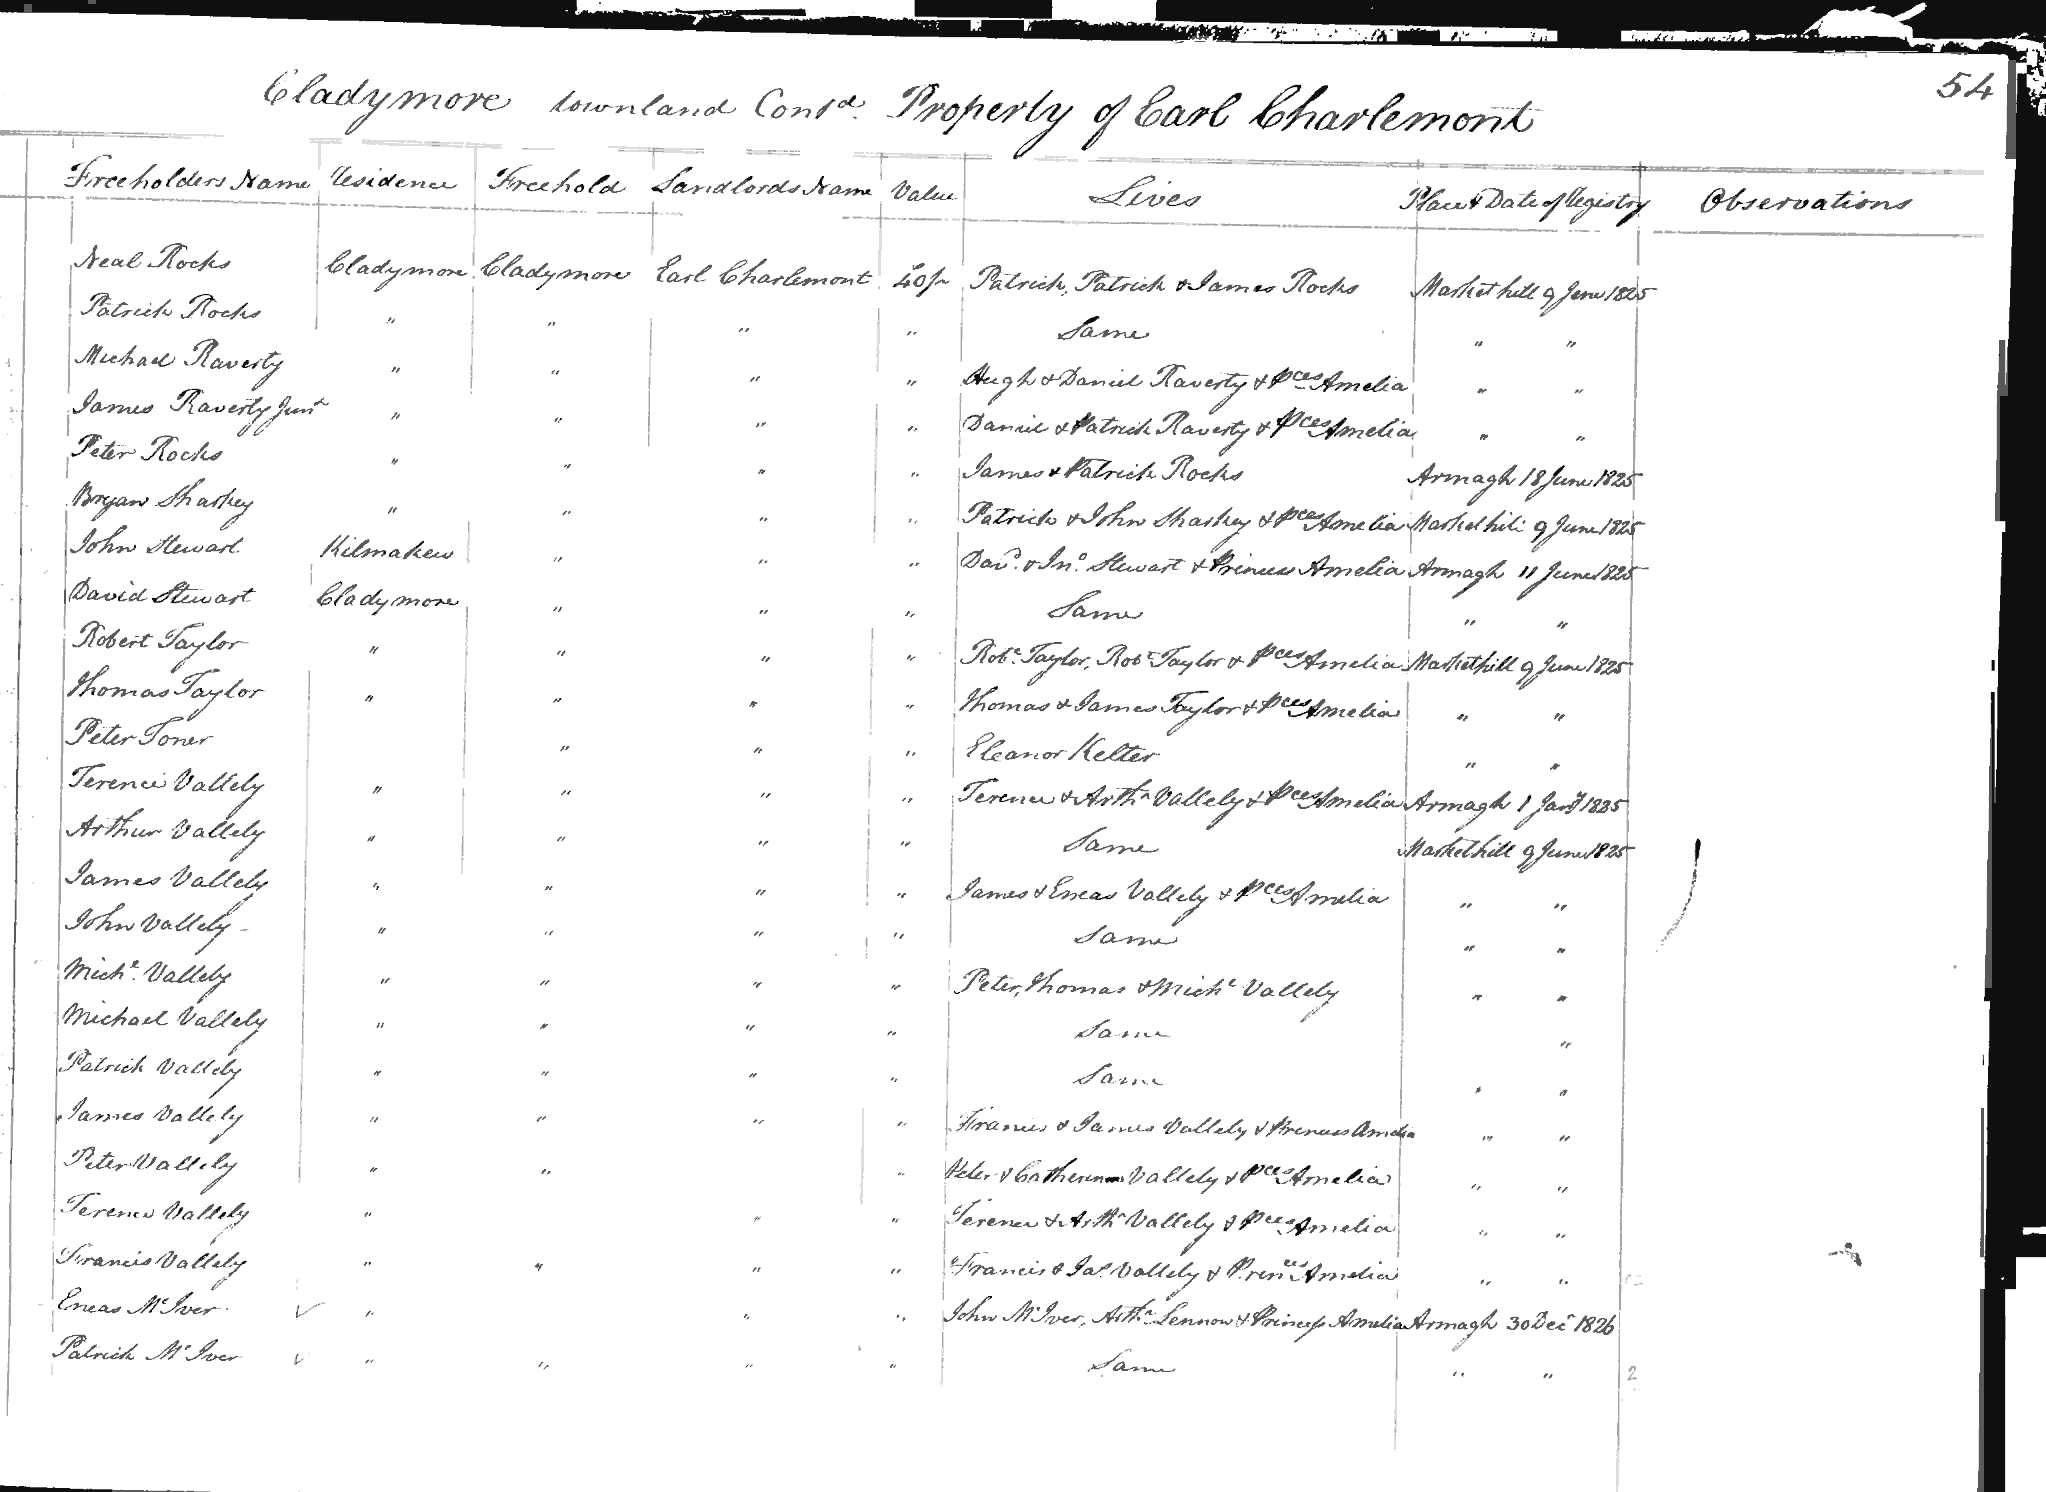 54
Cladymore townland Contd. Property of Earl Charlemont
Freeholders Name Residence Freehold Landlords Name Value Lives Place & Date of Registry Observations
Neal Rocks Cladymore Cladymore Earl Charlemont 40/- Patrick, Patrick & James Rocks Markethill 9 June 1825
Patrick Rocks " " " " Same " "
Michael Raverty " " " " Hugh & Daniel Raverty & Pces Amelia " "
James Raverty Junr " " " " Daniel & Patrick Raverty & Pces Amelia " "
Peter Rocks " " " " James & Patrick Rocks Armagh 18 June 1825
Bryan Sharkey " " " " Patrick & John Sharkey & Pces Amelia Markethill 9 June 1825
John Stewart Kilmakew " " " Davd. & Jno. Stewart & Princess Amelia Armagh 11 June 1825
David Stewart Cladymore " " " Same " "
Robert Taylor " " " " Robt. Taylor, Robt Taylor & Pces Amelia Markethill 9 June 1825
Thomas Taylor " " " " Thomas & James Taylor & Pces Amelia " "
Peter Toner " " " Eleanor Kelter " "
Terence Vallely " " " " Terence & Arthr Vallely & Pces Amelia Armagh 1 Jany 1825
Arthur Vallely " " " " Same Markethill 9 June 1825
James Vallely " " " " James & Eneas Vallely & Pces Amelia " "
John Vallely " " " " Same " "
Michl. Vallely " " " " Peter, Thomas & Michl Vallely " "
Michael Vallely " " " " Same "
Patrick Vallely " " " " Same " "
James Vallely " " " " Francis & James Vallely & Princess Amelia " "
Peter Vallely " " " Peter & Catherine Vallely & Pces Amelia " "
Terence Vallely " " " Terence & Arthr Vallely & Pces Amelia " "
Francis Vallely " " " " Francis & Jas. Vallely & Princes Amelia " "
Eneas McIver " " " John McIver, Arthr Lennon & Princess Amelia Armagh 30 Decr 1826
Patrick McIver " " " " Same " " 2